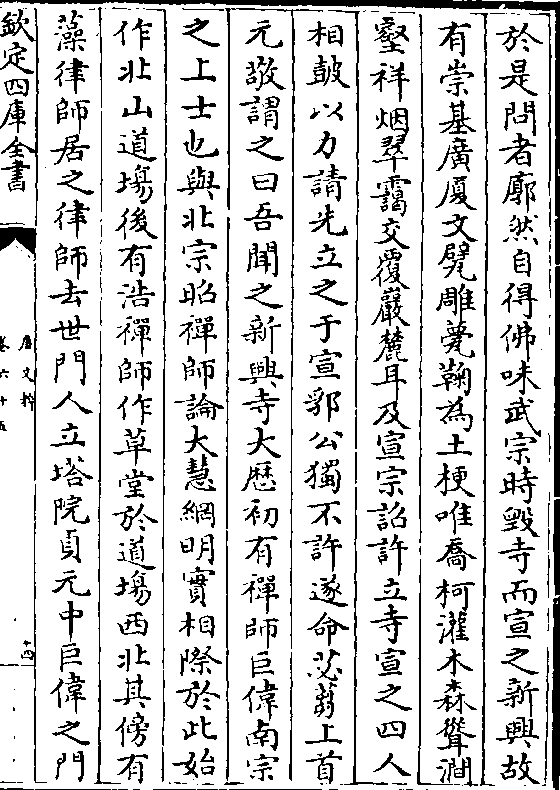 於是問者廓然自得佛味武宗時毀寺而宣之新興故
有崇基廣厦文甓雕甍鞠為土梗唯喬柯灌木森聳澗
壑祥烟翠靄交覆巖麓耳及宣宗詔許立寺宣之四人
相鼓以力請先立之于宣郛公獨不許遂命苾蒭上首
元敬謂之曰吾聞之新興寺大厯初有禪師巨偉南宗
之上士也與北宗昭禪師論大慧網明實相際於此始
作北山道塲後有浩禪師作草堂於道塲西北其傍有
藻律師居之律師去世門人立塔院貞元中巨偉之門
欽定四庫全書
唐文粹
卷六十五
十四